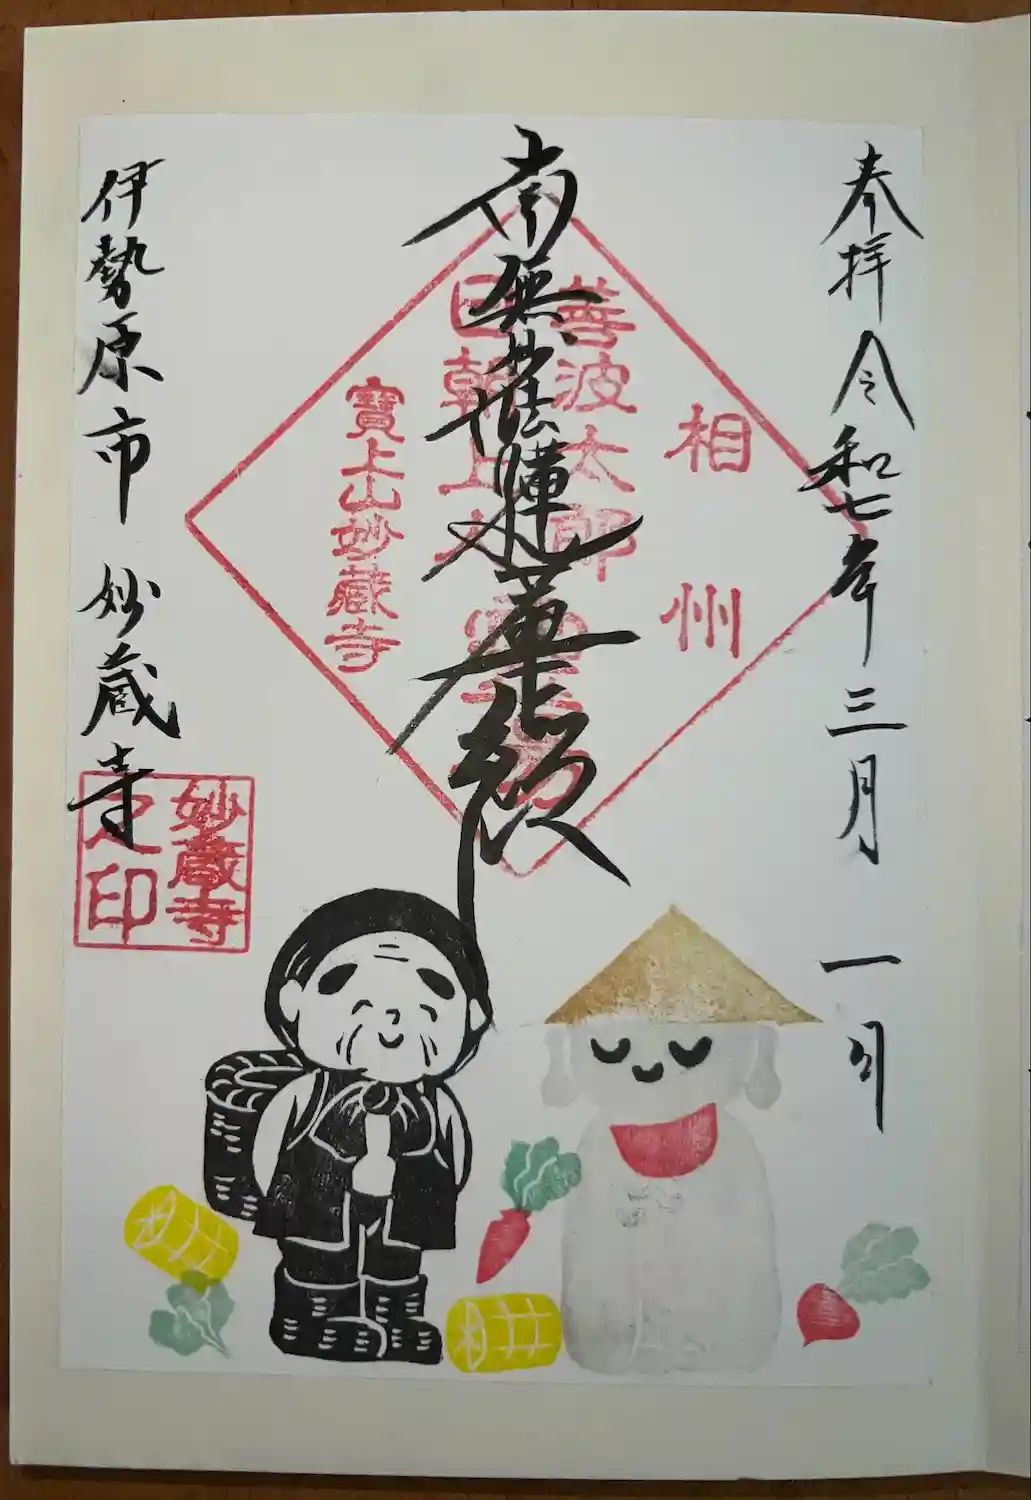 奉拝 令和七年三月 一日
相州
善波太郎
日朝上人
南無妙法蓮華経
寶上山妙蔵寺
伊勢原市 妙蔵寺
妙蔵寺
之印